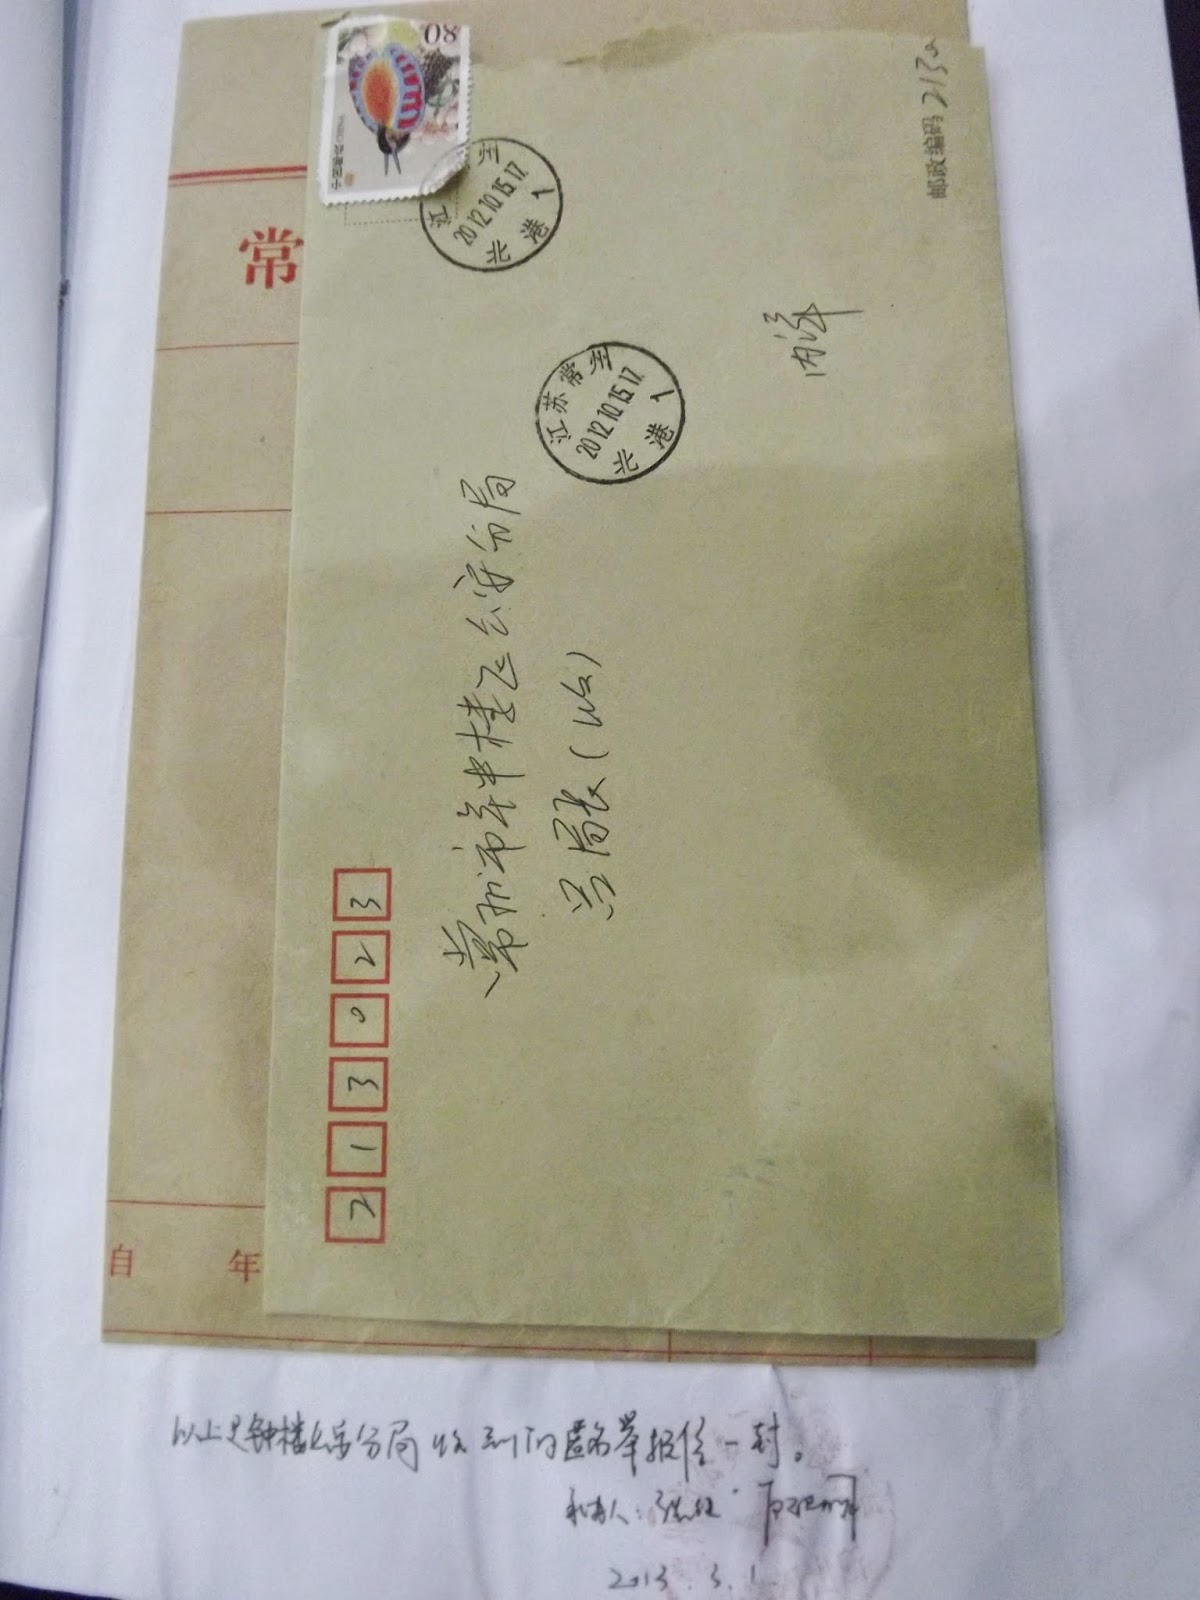 213023
常州市钟楼区公安分局
局长(收)
内详
邮政编码 2130
80
中国邮政
江 州
2012.10.15.17
北港 1
江苏常州
2012.10.15.17
北港 1
常
自 年
以上是钟楼公安分局收到的匿名举报信一封。
2013.3.1